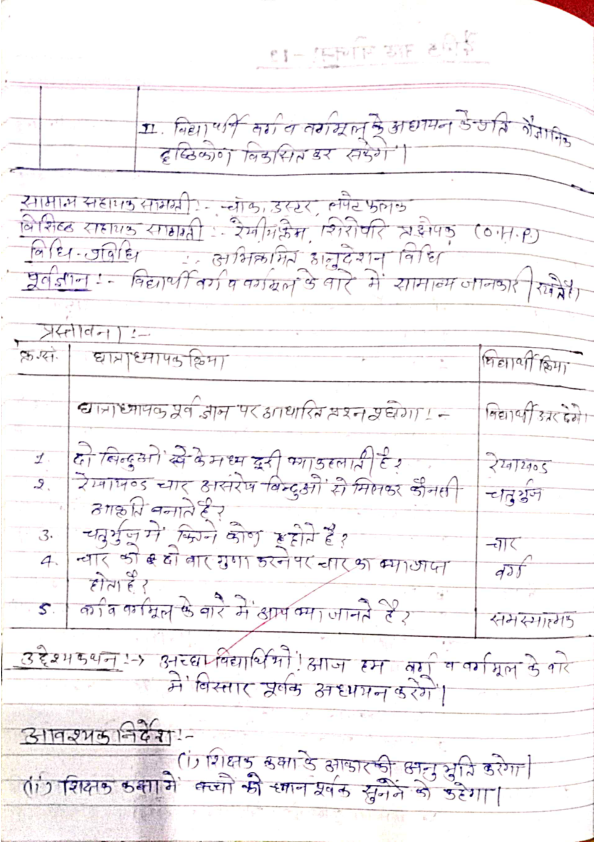 II. विद्यार्थी वर्ग व वर्गमूल के अध्ययन के प्रति वैज्ञानिक
दृष्टिकोण विकसित कर सकेंगे।
सामान्य सहायक सामग्री :- चॉक, डस्टर, लपेट फलक
विशिष्ट सहायक सामग्री :- शिरोपरि प्रक्षेपक (O.H.P)
विधि-प्रविधि :- अभिक्रमित अनुदेशन विधि
पूर्वज्ञान :- विद्यार्थी वर्ग व वर्गमूल के बारे में सामान्य जानकारी रखते है।
प्रस्तावना :-
क्र.सं. छात्राध्यापक क्रिया विद्यार्थी क्रिया
छात्राध्यापक पूर्व ज्ञान पर आधारित प्रश्न पूछेगा ! - विद्यार्थी उत्तर देंगे।
1. दो बिन्दुओं के मध्य दूरी क्या कहलाती है? रेखाखण्ड
2. रेखाखण्ड चार असंरेख बिन्दुओं से मिलकर कौनसी चतुर्भुज
आकृति बनाते है?
3. चतुर्भुज में कितने कोण होते है? चार
4. चार को दो बार गुणा करने पर चार का क्या वर्ग
होता है?
5. वर्ग व वर्गमूल के बारे में आप क्या जानते है? समस्यात्मक
उद्देश्य कथन :-> अच्छा विद्यार्थियों! आज हम वर्ग व वर्गमूल के बारे
में विस्तार पूर्वक अध्ययन करेंगे।
आवश्यक निर्देश :-
(i) शिक्षक कक्षा के आकार की करेगा।
(ii) शिक्षक कक्षा में बच्चों को ध्यान पूर्वक सुनने को कहेगा।